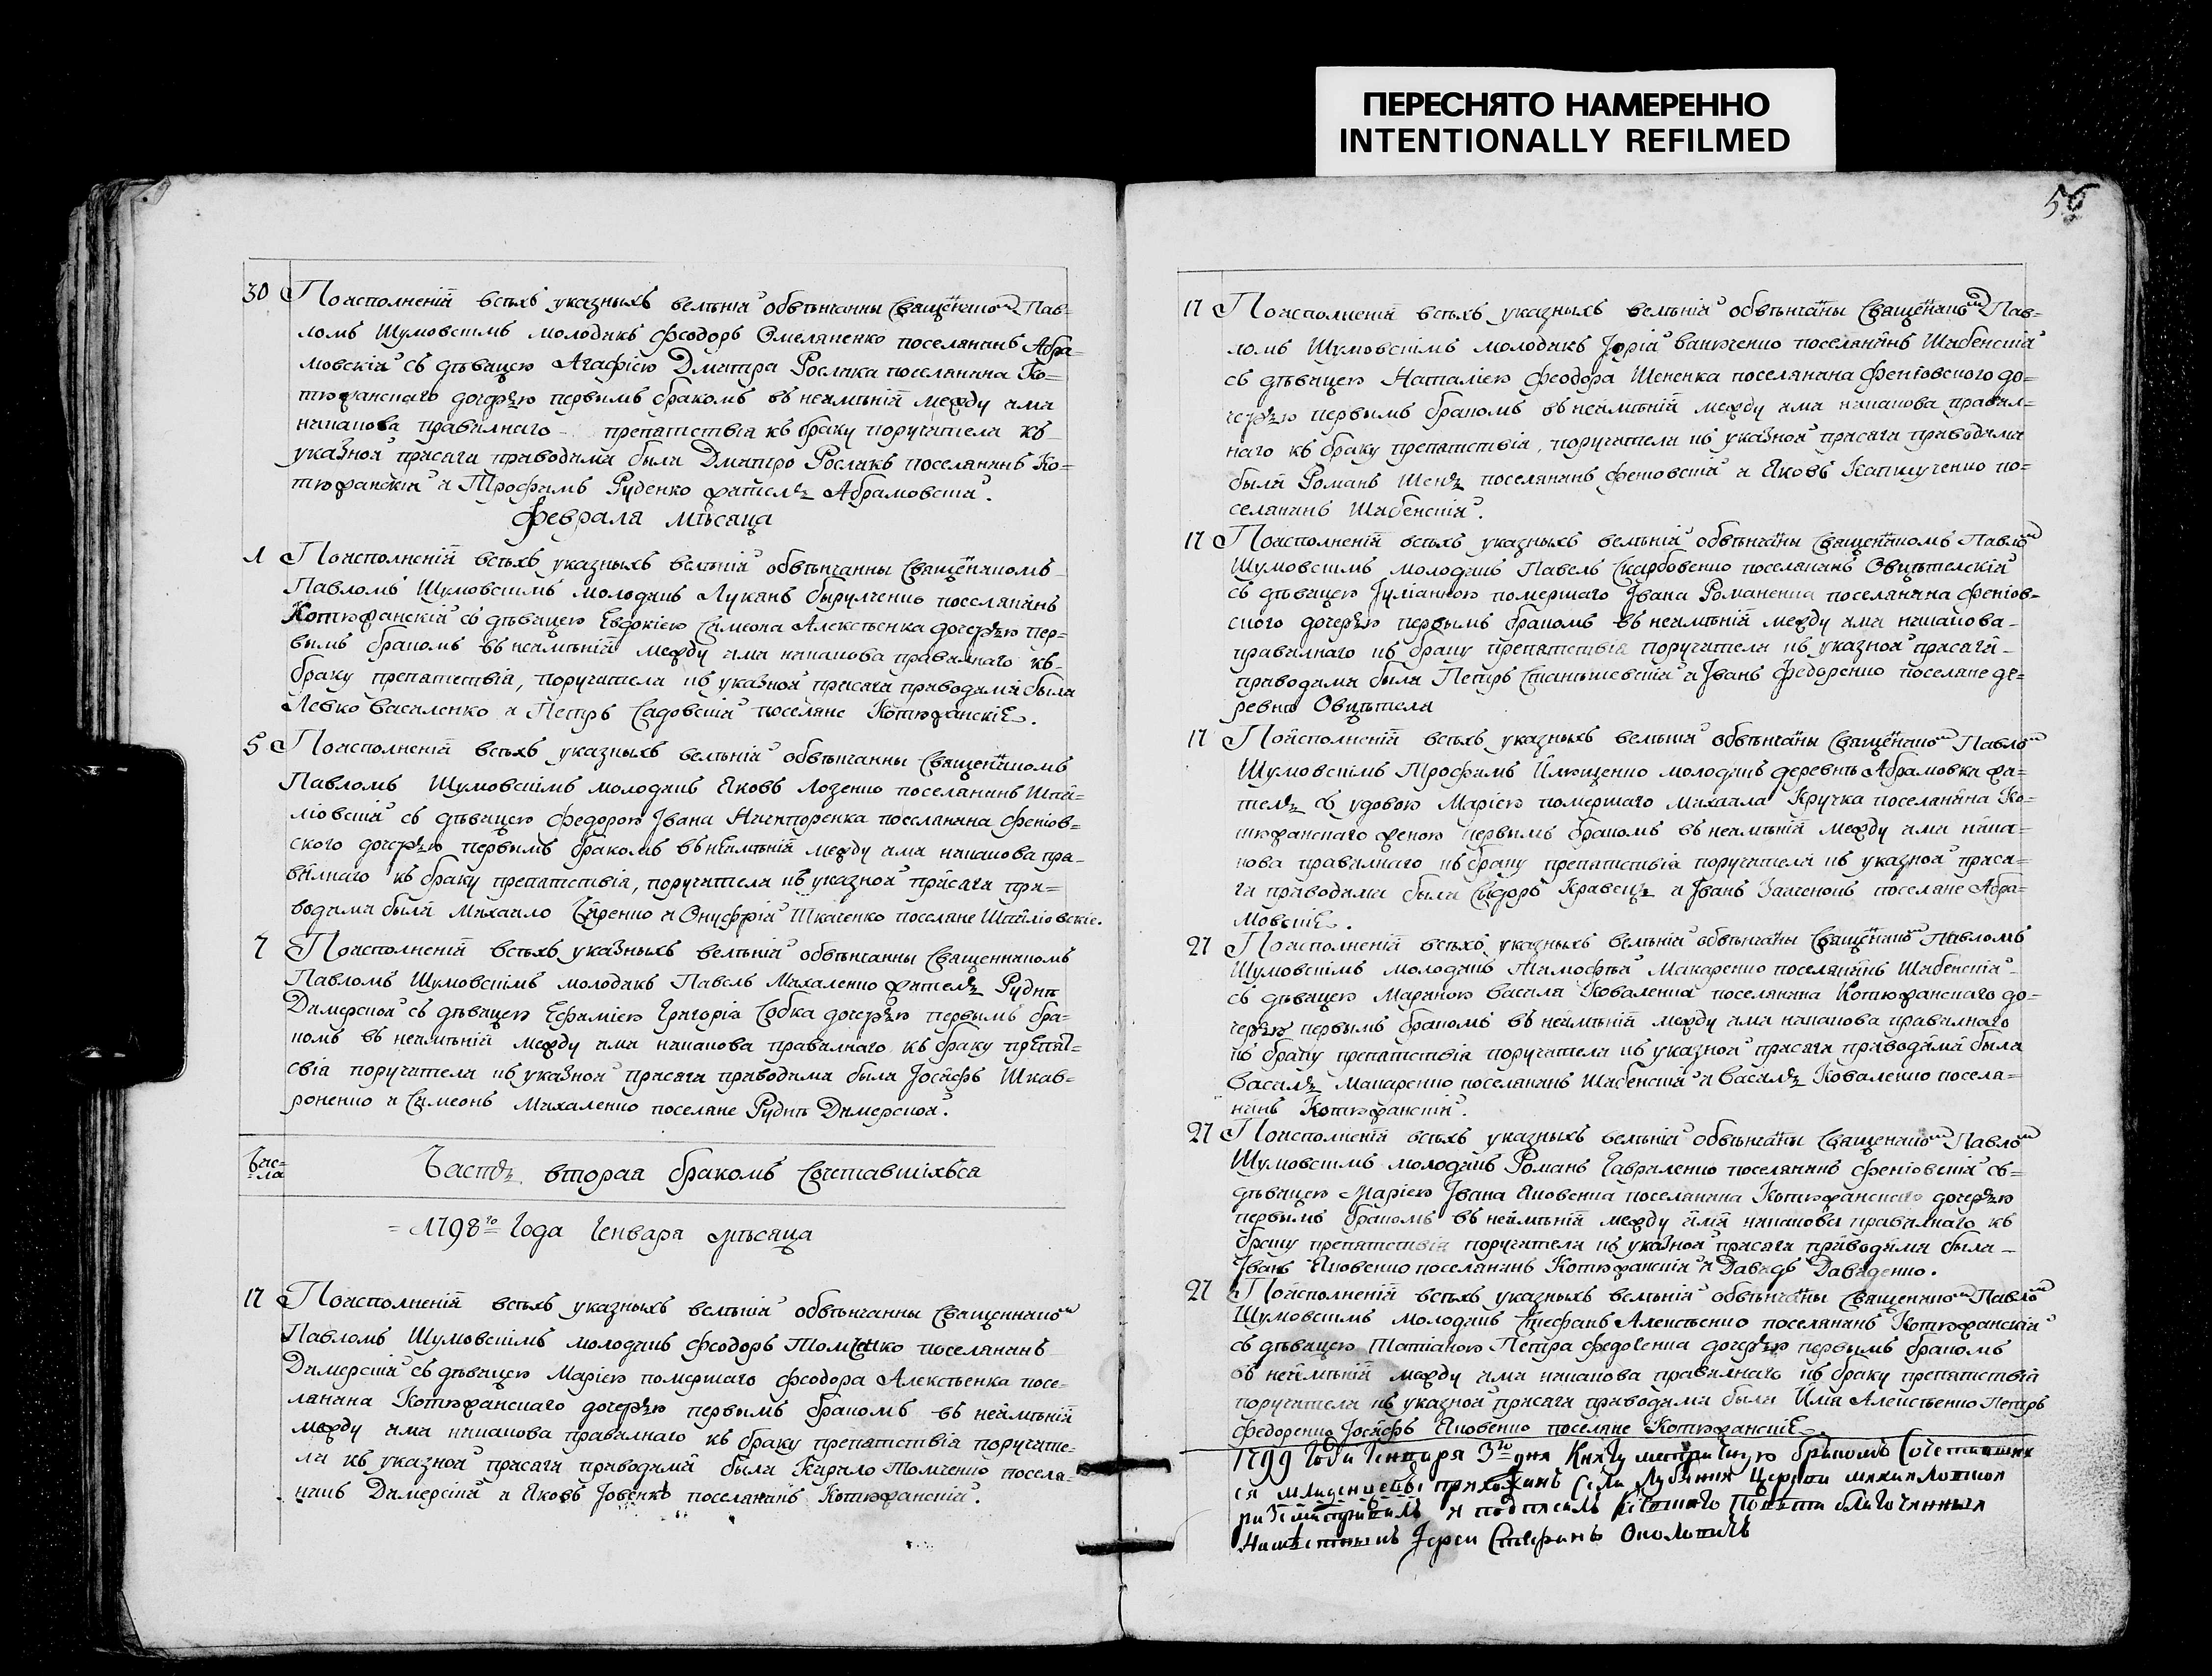 ПЕРЕСНЯТО НАМЕРЕННО
INTENTIONALLY REFILMED
56
30 Поисполненій всѣхъ указныхъ велѣній обвѣнчанны Священиком Пав=
ломъ Шумовскімъ молодикъ Феодоръ Омеляненко поселянинъ Абра=
мовскій съ дѣвицею Агафіею Дмитра Росляка поселянина Ко=
тюжанскаго дочерью первымъ бракомъ въ неимѣній между ими
никакова правилнаго препятствія къ браку поручители къ
указной присяги приводими были Дмитро Рослякъ поселянинъ Ко=
тюжанскій и Трофимъ Руденко житель Абрамовскій.
Февраля мѣсяца
1 Поисполненій всѣхъ указныхъ велѣній обвѣнчанны Священикомъ
Павломъ Шумовскімъ молодикъ Лукянъ поселянинъ
Котюжанскій съ дѣвицею Евдокіею Симеона Алексѣенка дочерью пер=
вымъ бракомъ въ неимѣній между ими никакова правилнаго къ
браку препятствія, поручители къ указной присяги приводими были
Левко Василенко и Петръ Садовскій поселяне Котюжанскіе.
5 Поисполненій всѣхъ указныхъ велѣній обвѣнчанны Священикомъ
Павломъ Шумовскімъ молодикъ Яковъ Лозенко поселянинъ
съ дѣвицею Федорою Івана поселянина Феніов=
ского дочерью первымъ бракомъ въ неимѣній между ими никакова пра=
вилнаго къ браку препятствія, поручители къ указной присяги при=
водими были Михайло и Онуфрій Ткаченко поселяне
7 Поисполненій всѣхъ указныхъ велѣній обвѣнчанны Священникомъ
Павломъ Шумовскімъ молодикъ Павелъ Михаленко житель Руднѣ
Димерской съ дѣвицею Ефиміею Григорія дочерью первымъ бра=
комъ въ неимѣній между ими никакова правилнаго къ браку препят=
свія поручители къ указной присяги приводими были Іосифъ Шкав=
роненко и Симеонъ Михаленко поселяне Руднѣ Димерской.
Чис=
=ла
Часть вторая бракомъ Сочетавшіхъся
= 1798го Года Генваря мѣсяца
17 Поисполненій всѣхъ указныхъ велѣній обвѣнчанны Священником
Павломъ Шумовскімъ молодикъ Феодоръ поселянинъ
Димерскій съ дѣвицею Маріею помершаго Феодора Алексѣенка посе=
лянина Котюжанскаго дочерью первымъ бракомъ въ неимѣній
между ими никакова правилнаго къ браку препятствія поручите=
ли къ указной присяги приводими были Кирило Томченко поселя=
нинъ Димерскій и Яковъ Іовенко поселянинъ Котюжанскій.
17 Поисполненій всѣхъ указныхъ велѣній обвѣнчаны Священиком Пав=
ломъ Шумовскімъ молодикъ поселянинъ Шибенскій
съ дѣвицею Наталіею Феодора поселянина Феніовского до=
черью первымъ бракомъ въ неимѣній между ими никакова правил=
наго къ браку препятствія, поручители къ указной присяги приводими
были Романъ поселянинъ Феніовскій и Яковъ по=
селянинъ Шибенскій.
17 Поисполненій всѣхъ указныхъ велѣній обвѣнчаны Священикомъ Павлом
Шумовскімъ молодикъ Павелъ Скарбовенко поселянинъ
съ дѣвицею Іуліанною помершаго Івана Романенка поселянина Феніов=
ского дочерью первымъ бракомъ въ неимѣній между ими никакова
правилнаго къ браку препятствія поручители къ указной присяги
приводими были Петръ и Іванъ Федоренко поселяне де=
ревни
17 Поисполненій всѣхъ указныхъ велѣній обвѣнчаны Священиком Павлом
Шумовскімъ Трофимъ молодикъ деревнѣ Абрамовки жи=
тель съ удовою Маріею помершаго Михаила Кручка поселянина Ко=
тюжанскаго женою первымъ бракомъ въ неимѣній между ими ника=
кова правилнаго къ браку препятствія поручители къ указной прися=
ги приводими были Сидоръ Кравецъ и Іванъ поселяне Абра=
мовскіе.
27 Поисполненій всѣхъ указныхъ велѣній обвѣнчаны Священиком Павломъ
Шумовскімъ молодикъ Тимофѣй Макаренко поселянинъ Шибенскій
съ дѣвицею Мариною Василя Коваленка поселянина Котюжанскаго до=
черью первымъ бракомъ въ неимѣній между ими никакова правилнаго
къ браку препятствія поручители къ указной присяги приводими были
Василь Макаренко поселянинъ Шибенскій и Василь Коваленко поселя=
нинъ Котюжанскій.
27 Поисполненій всѣхъ указныхъ велѣній обвѣнчаны Священиком Павлом
Шумовскімъ молодикъ Романъ Гавриленко поселянинъ Феніовскій съ
дѣвицею Маріею Івана Яковенка поселянина Котюжанскаго дочерью
первымъ бракомъ въ неимѣній между ими никакова правилнаго къ
браку препятствія поручители къ указной присяги приводими были
Іванъ Яковенко поселянинъ Котюжанскій и Давидъ Давиденко.
27 Поисполненій всѣхъ указныхъ велѣній обвѣнчаны Священиком Павлом
Шумовскімъ молодикъ Стефанъ Алексѣенко поселянинъ Котюжанскій
съ дѣвицею Татіаною Петра Федоренка дочерью первымъ бракомъ
въ неимѣній между ими никакова правилнаго къ браку препятствія
поручители къ указной присяги приводими были Илія Алексѣенко Петръ
Федоренко Іосифъ Яковенко поселяне Котюжанскіе.
1799 Года Генваря 3го дня Книгу бракомъ Сочетавших
ся прихожанъ Села Церкви
и подписалъ
Іереи Стефанъ